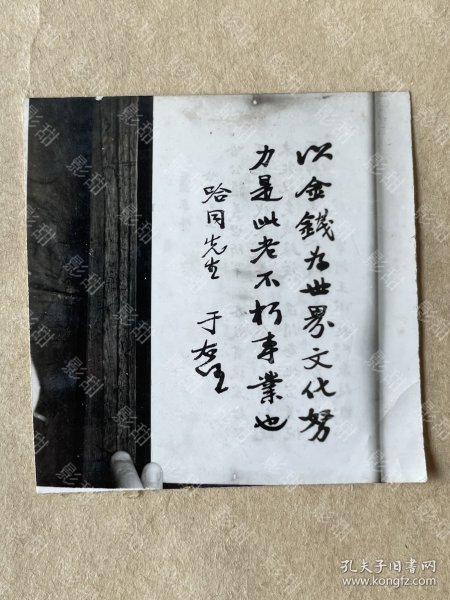 以金錢為世界文化努
力是此老不朽事業也
哈同先生 于右任
影甜
孔夫子旧书网
www.kongfz.com